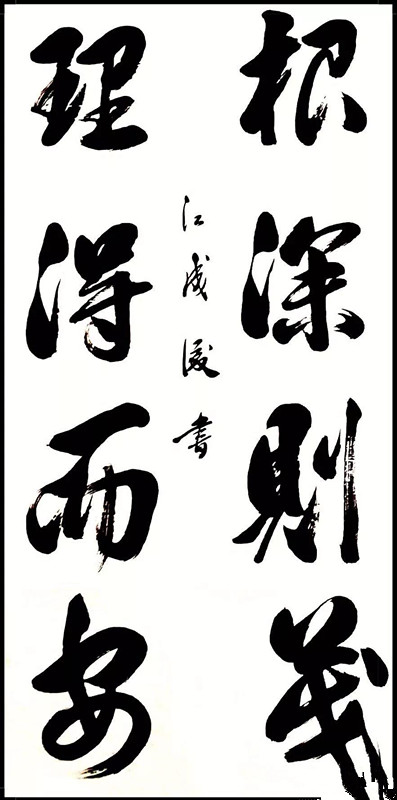 根深則茂
理得而安
江成書